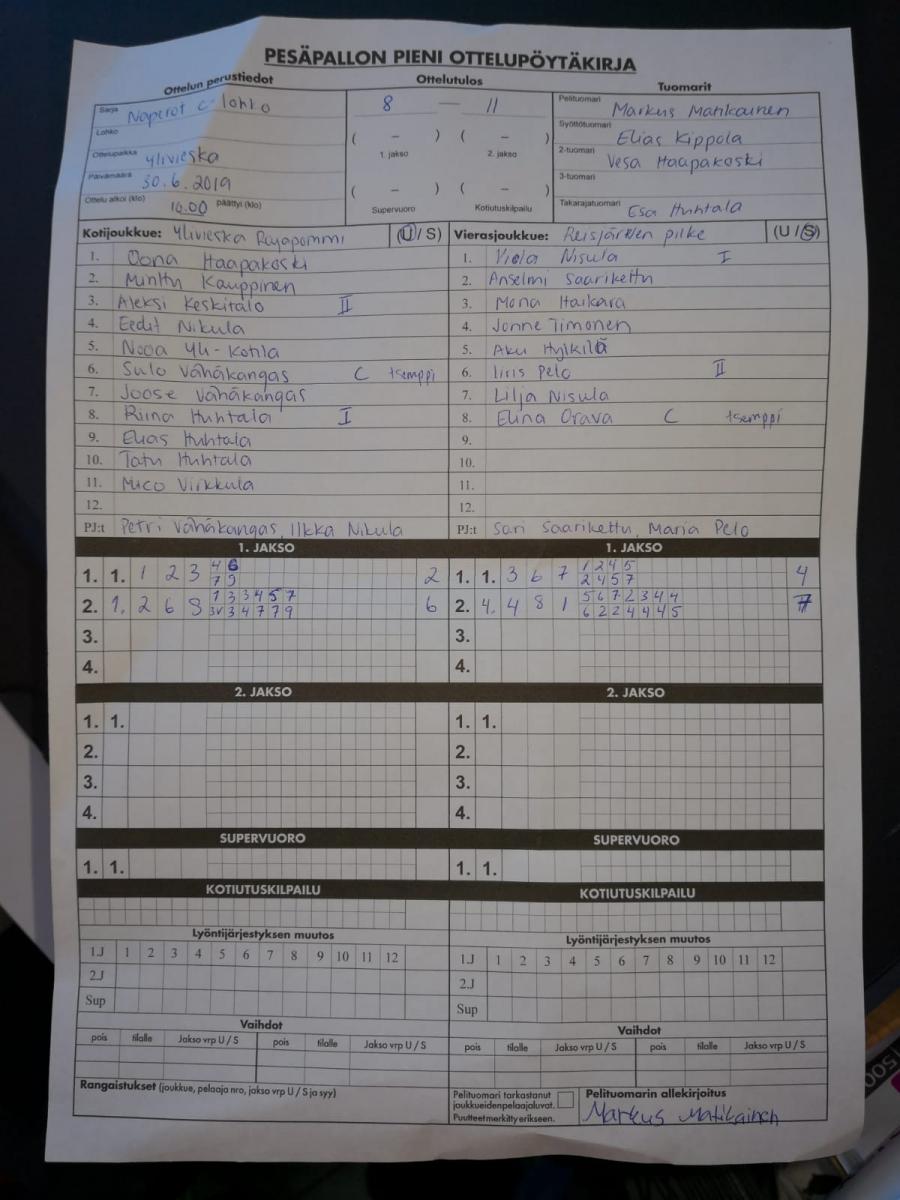 PESÄPALLON PIENI OTTELUPÖYTÄKIRJA
Ottelun perustiedot
Ottelutulos
Tuomarit
Sarja Naperot C-lohko
Lohko
Ottelupaikka Ylivieska
Päivämäärä 30.6.2019
Ottelu alkoi (klo) päättyi (klo)
8 — 11
( – ) ( – )
1. jakso 2. jakso
( – ) ( – )
Supervuoro Kotiutuskilpailu
Pelituomari Markus Matikainen
Syöttötuomari Elias Kippola
2-tuomari Vesa Haapakoski
3-tuomari
Takarajatuomari Esa Huhtala
Kotijoukkue: Ylivieska Rajapommi (U / S)
1. Oona Haapakoski
2. Minttu Kauppinen
3. Aleksi Keskitalo II
4. Eedit Nikula
5. Nooa Yli-Kotila
6. Sulo Vähäkangas C tsemppi
7. Joose Vähäkangas
8. Riina Huhtala I
9. Elias Huhtala
10. Tatu Huhtala
11. Mico Virkkula
12.
PJ:t Petri Vähäkangas, Ilkka Nikula
Vierasjoukkue: Reisjärven pilke (U / S)
1. Viola Nisula I
2. Anselmi Saarikettu
3. Mona Haikara
4. Jonne Timonen
5. Aku Hylkilä
6. Iiris Pelo II
7. Lilja Nisula
8. Elina Orava C tsemppi
9.
10.
11.
12.
PJ:t Sari Saarikettu, Maria Pelo
1. JAKSO
1. 1. 1 2 3 4 6 2
7 9
2. 1. 2 6 8 1 3 3 4 5 7 6
3V 3 4 7 7 9
3.
4.
1. JAKSO
1. 1. 3 6 7 1 2 4 5 4
2 4 5 7
2. 4. 4 8 1 5 6 7 2 3 4 4 7
6 2 2 4 4 4 5
3.
4.
2. JAKSO
1. 1.
2.
3.
4.
2. JAKSO
1. 1.
2.
3.
4.
SUPERVUORO
1. 1.
SUPERVUORO
1. 1.
KOTIUTUSKILPAILU
KOTIUTUSKILPAILU
Lyöntijärjestyksen muutos
1.J 1 2 3 4 5 6 7 8 9 10 11 12
2.J
Sup
Lyöntijärjestyksen muutos
1.J 1 2 3 4 5 6 7 8 9 10 11 12
2.J
Sup
Vaihdot
pois tilalle Jakso vrp U / S pois tilalle Jakso vrp U / S
Vaihdot
pois tilalle Jakso vrp U / S pois tilalle Jakso vrp U / S
Rangaistukset (joukkue, pelaaja nro, jakso vrp U / S ja syy)
Pelituomari tarkastanut
joukkueidenpelaajaluvat.
Puutteetmerkitty erikseen.
Pelituomarin allekirjoitus
Markus Matikainen
500